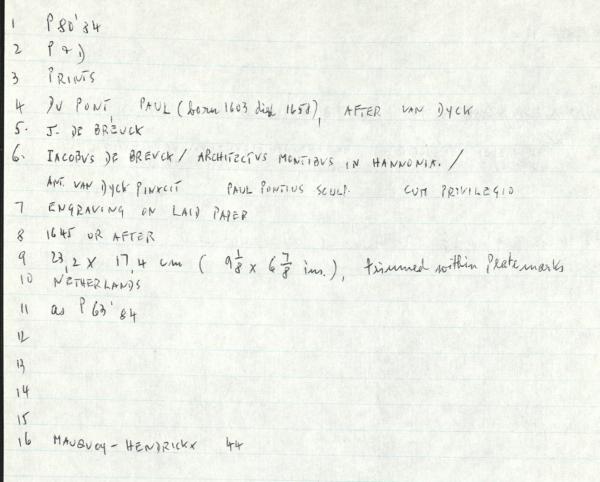 1 P 80'84
2 P & D
3 PRINTS
4 DU PONT, PAUL (born 1603 died 1658), AFTER VAN DYCK
5. J. DE BREUCK
6. IACOBVS DE BREVCK / ARCHITECTVS MONTIBVS IN HANNONIA. /
ANT. VAN DYCK PINXIT PAUL PONTIUS SCULP. CUM PRIVILEGIO
7 ENGRAVING ON LAID PAPER
8 1645 OR AFTER
9 23,2 x 17,4 cm ( 9 1/8 x 6 7/8 ins.), trimmed within Platemarks
10 NETHERLANDS
11 as P 63'84
12
13
14
15
16 MAUQUOY-HENDRICKX 44